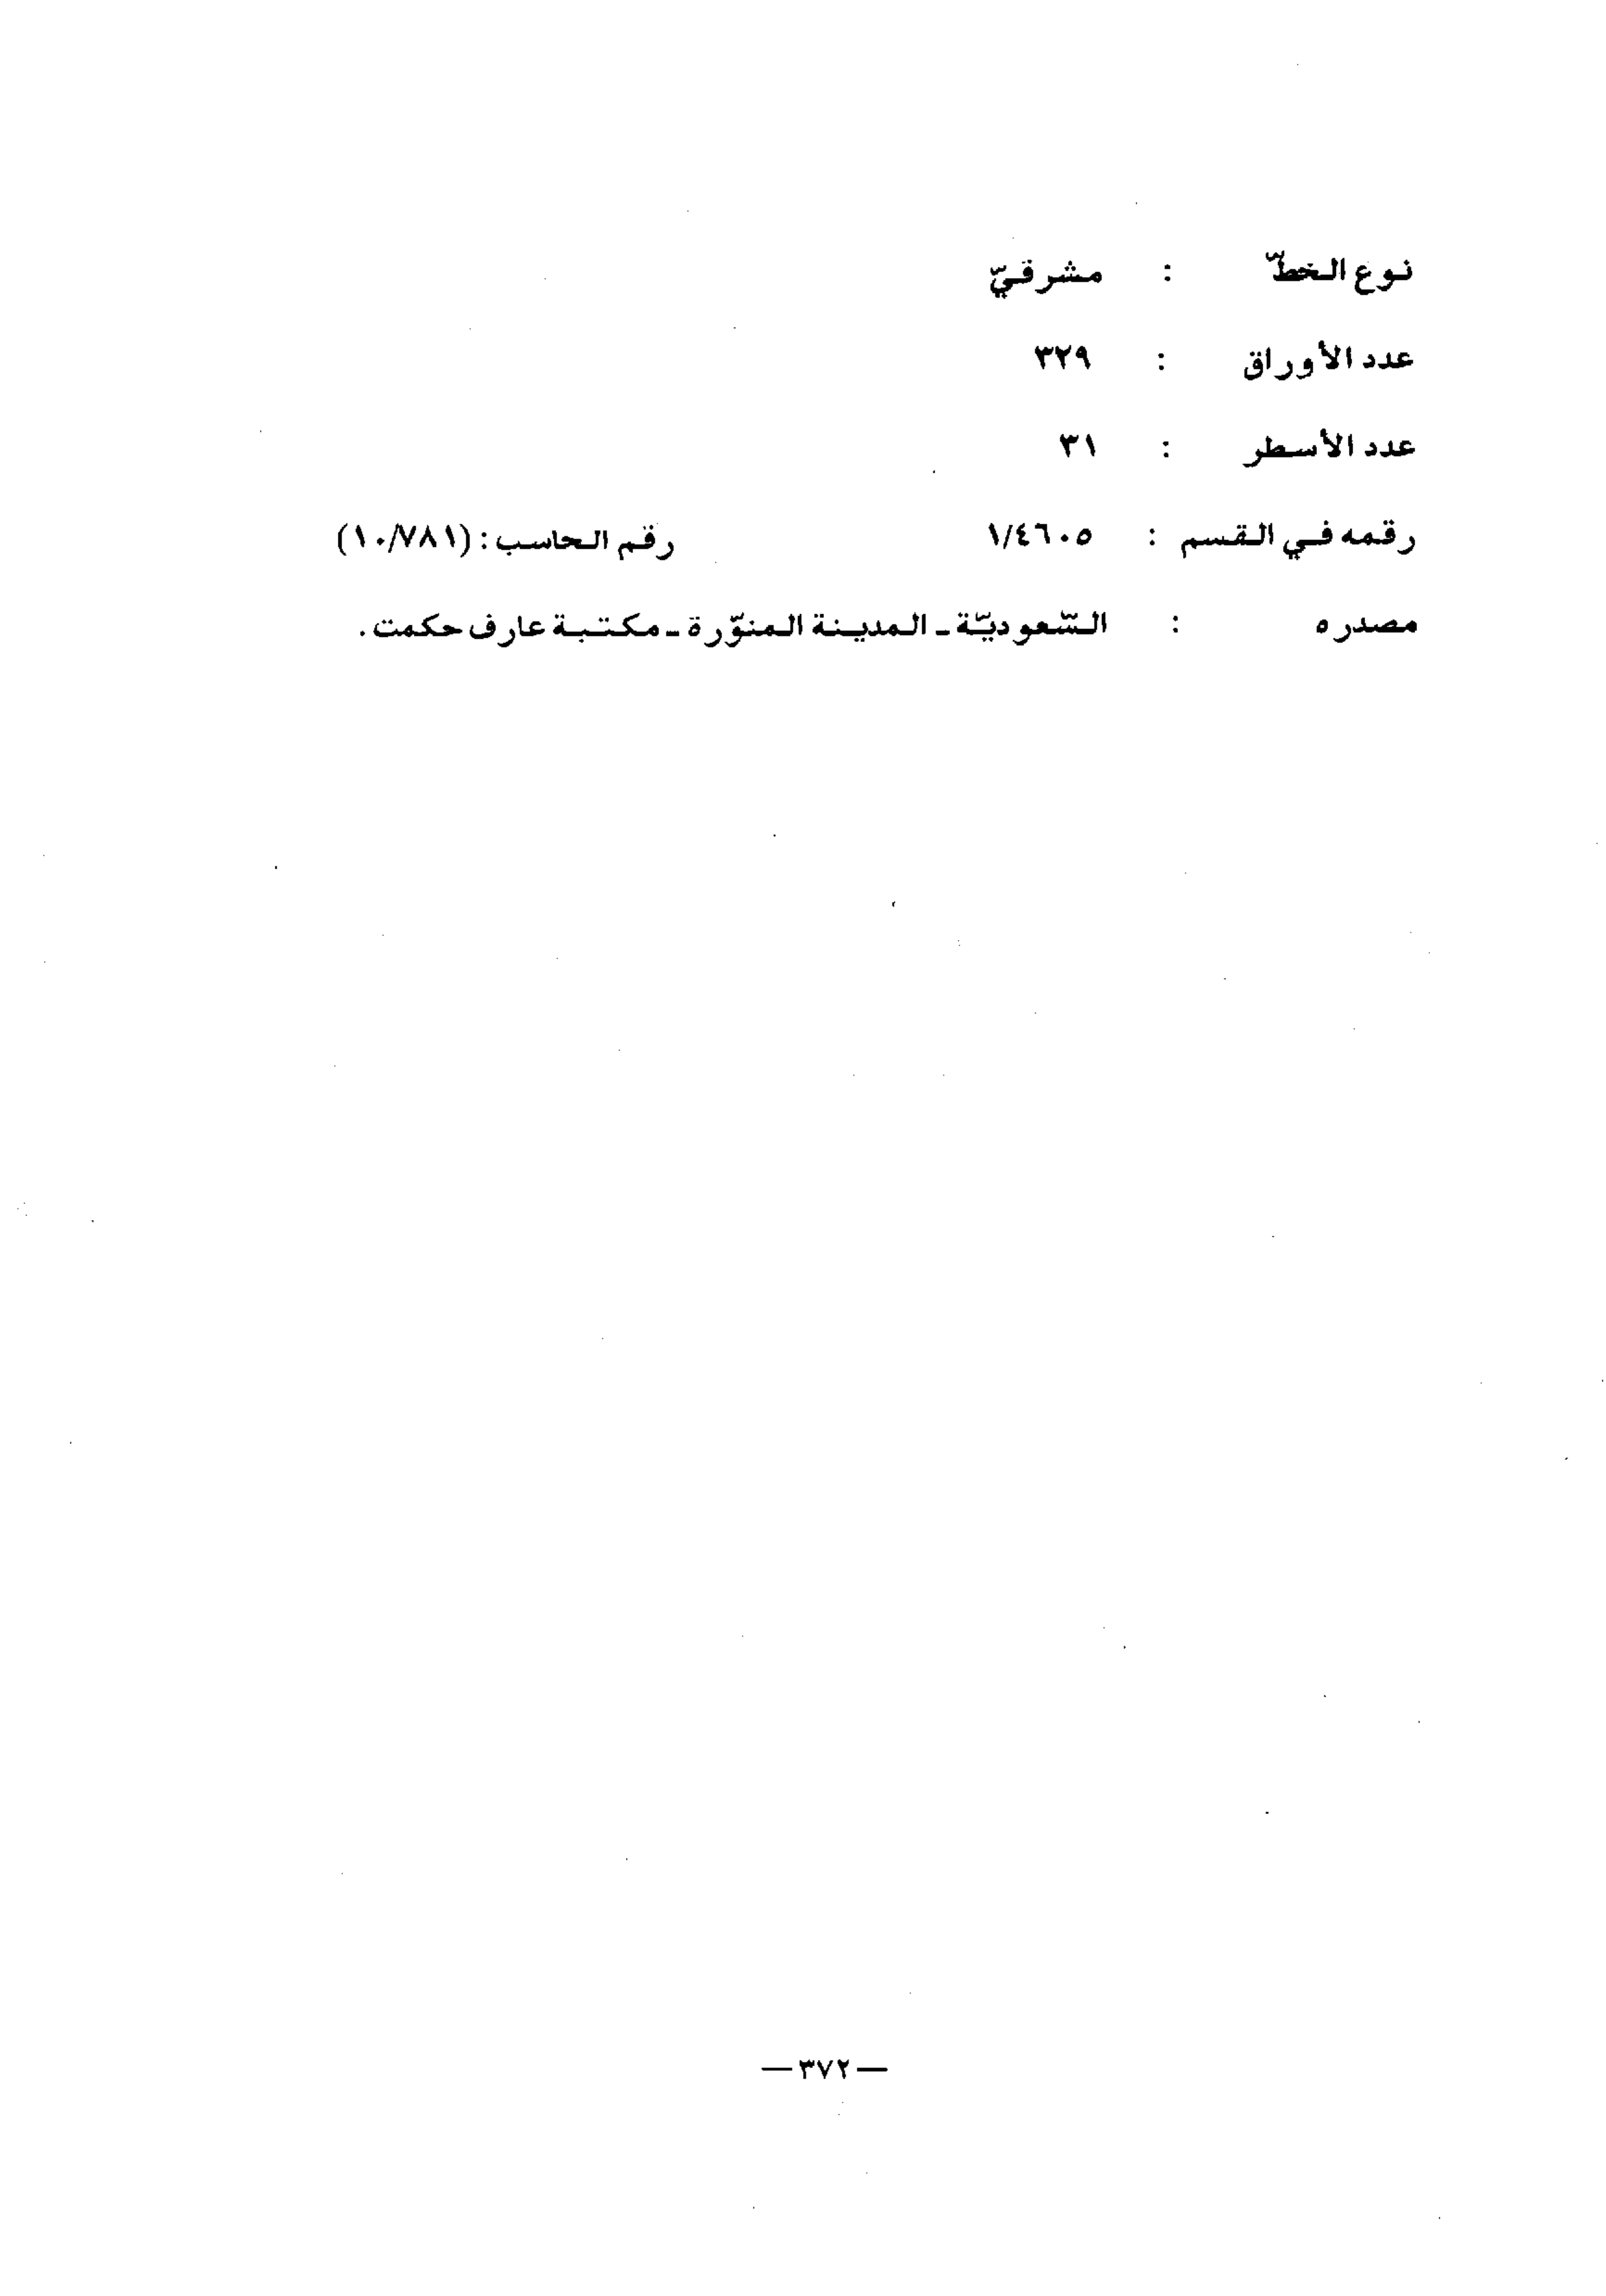 نوع الخطّ : مشرقيّ
عدد الأوراق : ٣٢٩
عدد الأسطر : ٣١
رقمه في القسم : ١/٤٦٠٥ رقم الحاسب : (١٠/٧٨١)
مصدره : السّعوديّة - المدينة المنوّرة - مكتبة عارف حكمت .
— ٣٧٢ —